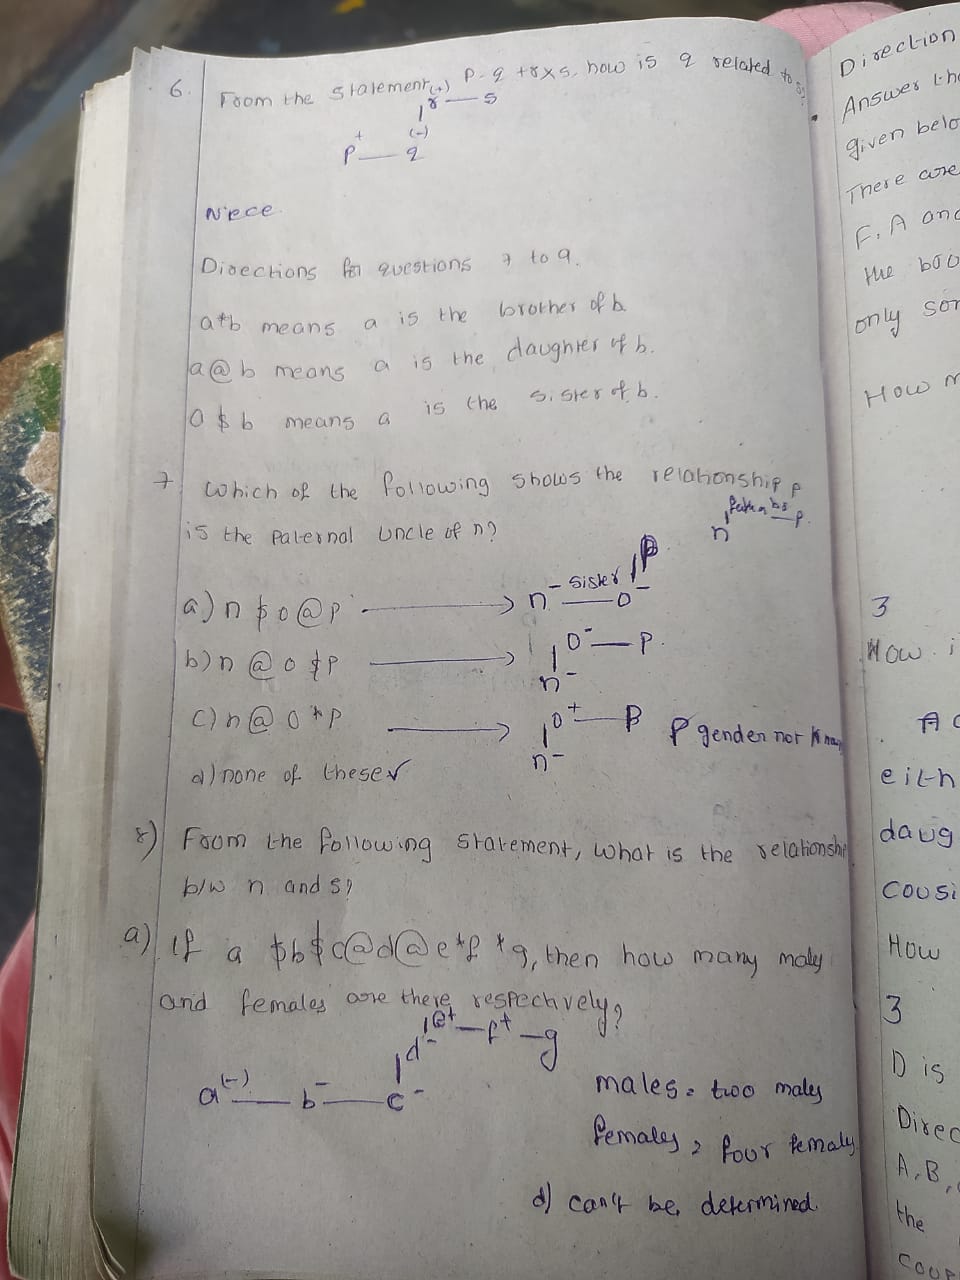 6. From the statement, P-q+r×s, how is q related to s?
(+)
r — s
(-)
+
P — q
Niece
Directions for questions 7 to 9.
a*b means a is the brother of b.
a@b means a is the daughter of b.
a $ b means a is the sister of b.
7 Which of the following shows the relationship P
is the paternal uncle of n?
P.
n
a) n $ o @ p → n⁻ sister o⁻ P
b) n @ o $ p → o⁻ — P.
n⁻
c) n @ o * p → o⁺ — P P gender not
n⁻
d) none of these ✓
8) From the following statement, what is the
b/w n and s?
a) If a $b$c@d@e*f*g, then how many
and females are there respectively?
e+ — f+ — g
d-
a(-) — b- — c-
males = two males
females = four
d) can't be determined.
Direction
Answer
given
There are
F, A and
the
only
How
3
How i
A
D is
A, B,
the